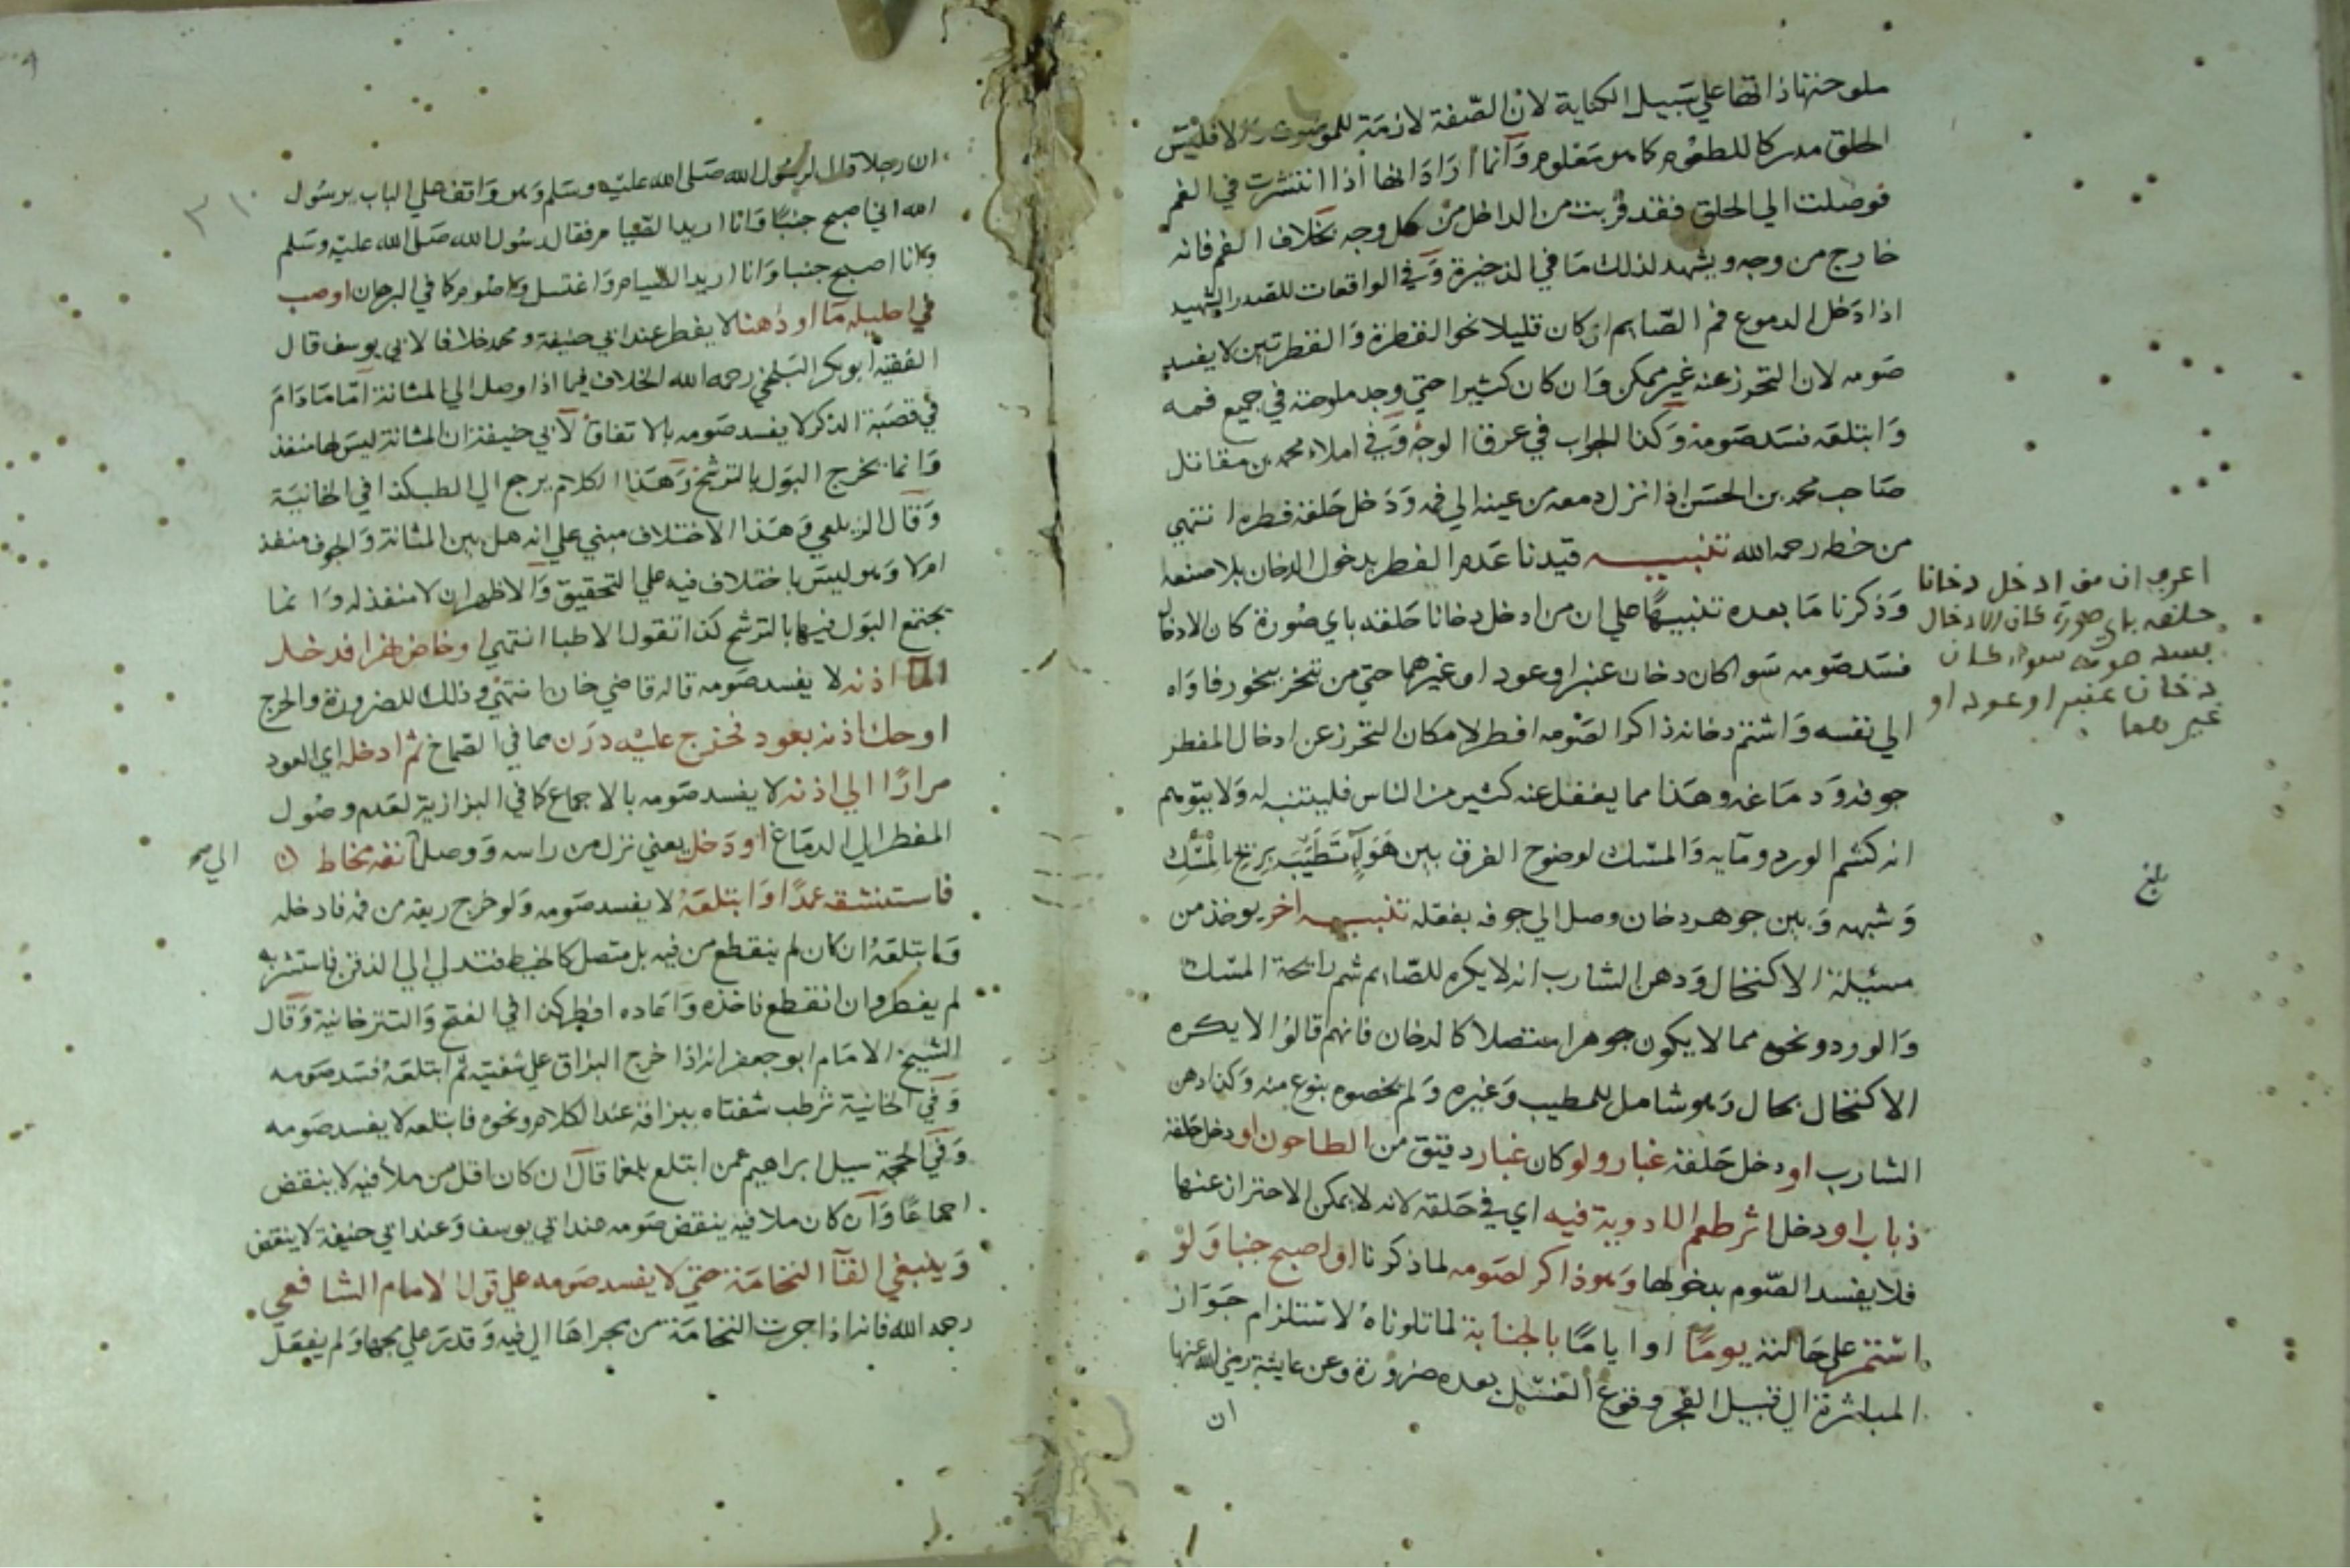 ملوحتها ذاتها علي سبيل الكناية لان الصفة لازمة للموصوف والا فليس
الحلق مدركا للطعوم كما هو معلوم وانما اراد انها اذا انتشرت في الفم
فوصلت الي الحلق فقد قربت من الداخل من كل وجه بخلاف الفم فانه
خارج من وجه ويشهد لذلك ما في الذخيرة وفي الواقعات للصدر الشهيد
اذا دخل الدموع فم الصايم ان كان قليلا نحو القطرة والقطرتين لا يفسد
صومه لان التحرز عنه غير ممكن وان كان كثيرا حتي وجد ملوحته في جميع فمه
وابتلعه فسد صومه وكذا الجواب في عرق الوجه وفي املاء محمد بن مقاتل
صاحب محمد بن الحسن اذا نزل دمعه من عينه الي فمه ودخل حلقه فطره انتهي
من خطه رحمه الله تنبيه قيدنا عدم الفطر بدخول الدخان بلا صنعه
وذكرنا ما بعده تنبيها علي ان من ادخل دخانا حلقه باي صورة كان الادخال
فسد صومه سوا كان دخان عنبر او عود او غيرهما حتي من تبخر ببخور فاواه
الي نفسه واشتم دخانه ذاكرا لصومه افطر لامكان التحرز عن ادخال المفطر
جوفه ودماغه وهذا مما يغفل عنه كثير من الناس فليتنبه له ولا يتوهم
انه كشم الورد ومايه والمسك لوضوح الفرق بين هوا تطيب بريح المسك
وشبهه وبين جوهر دخان وصل الي جوفه بفعله تنبيه اخر يوخذ من
مسئلة الاكتحال ودهن الشارب انه لا يكره للصايم شم رايحة المسك
والورد ونحوه مما لا يكون جوهرا متصلا كالدخان فانهم قالوا لا يكره
الاكتحال بحال وهو شامل للمطيب وغيره ولم يخصوه بنوع منه وكذا دهن
الشارب او دخل حلقه غبار ولو كان غبار دقيق من الطاحون او دخل حلقه
ذباب او دخل اثر طعم الادوية فيه اي في حلقه لانه لا يمكن الاحتراز عنها
فلا يفسد الصوم بدخولها وهو ذاكر لصومه لما ذكرنا او اصبح جنبا ولو
استمر علي حالته يوما او اياما بالجنابة لما تلوناه لاستلزام جواز
المباشرة الي قبيل الفجر وقوع الغسل بعده ضرورة وعن عايشة رضي الله عنها
ان
اعرف ان من ادخل دخانا
حلقه باي صورة كان الادخال
يفسد صومه سواء كان
دخان عنبر او عود او
غيرهما
بلغ
ان رجلا قال لرسول الله صلي الله عليه وسلم وهو واقف علي الباب يرسول
الله اني اصبح جنبا وانا اريد الصيام فقال رسول الله صلي الله عليه وسلم
وانا اصبح جنبا وانا اريد الصيام واغتسل واصوم كما في البرهان او صب
في احليله ما او دهنا لا يفطر عند ابي حنيفة ومحمد خلافا لابي يوسف قال
الفقيه ابو بكر البلخي رحمه الله الخلاف فيما اذا وصل الي المثانة اما ما دام
في قصبة الذكر لا يفسد صومه بالاتفاق لابي حنيفة ان المثانة ليس لها منفذ
وانما يخرج البول بالترشح وهذا الكلام يرجع الي الطب كذا في الخانية
وقال الزيلعي وهذا الاختلاف مبني علي انه هل بين المثانة والجوف منفذ
ام لا وهو ليس باختلاف فيه علي التحقيق والاظهر ان لا منفذ له وانما
يجتمع البول فيها بالترشح كذا تقول الاطبا انتهي او خاض نهرا فدخل
الما اذنه لا يفسد صومه قاله قاضي خان انتهي وذلك للضرورة والحرج
او حك اذنه بعود فخرج عليه درن مما في الصماخ ثم ادخله اي العود
مرارا الي اذنه لا يفسد صومه بالاجماع كما في البزازية لعدم وصول
المفطر الي الدماغ او دخل يعني نزل من راسه ووصل انفه مخاط
الي صح
فاستنشقه عمدا وابتلعه لا يفسد صومه ولو خرج ريقه من فمه فادخله
وابتلعه ان كان لم ينقطع من فيه بل متصل كالخيط فتدلي الي الذقن فاستشربه
لم يفطر وان انقطع فاخذه واعاده افطر كذا في الفتح والتترخانية وقال
الشيخ الامام ابو جعفر انه اذا خرج البزاق علي شفتيه ثم ابتلعه فسد صومه
وفي الخانية ترطب شفتاه ببزاقه عند الكلام ونحوه فابتلعه لا يفسد صومه
وفي الحجة سيل ابراهيم عمن ابتلع بلغما قال ان كان اقل من ملأ فيه لا ينقض
اجماعا وان كان ملا فيه ينقض صومه عند ابي يوسف وعند ابي حنيفة لا ينقض
وينبغي القآ النخامة حتي لا يفسد صومه علي قول الامام الشافعي
رحمه الله فانه اذا جرت النخامة من مجراها الي فيه وقدر علي مجها ولم يفعل